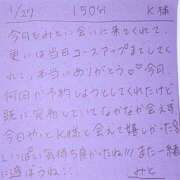 1/27 150分 K様
今日もみとに会いに来てくれて、
更には当日コースアップまでしてく
れて、本当にありがとう♡今日
何回か予約しようとしてくれたけど
既に完売していてなかなか会えず
今日やっとK様と会えて嬉しかった
いっぱい気持ち良かったね!!!また一緒
に遊ぼうね♡♡ みと